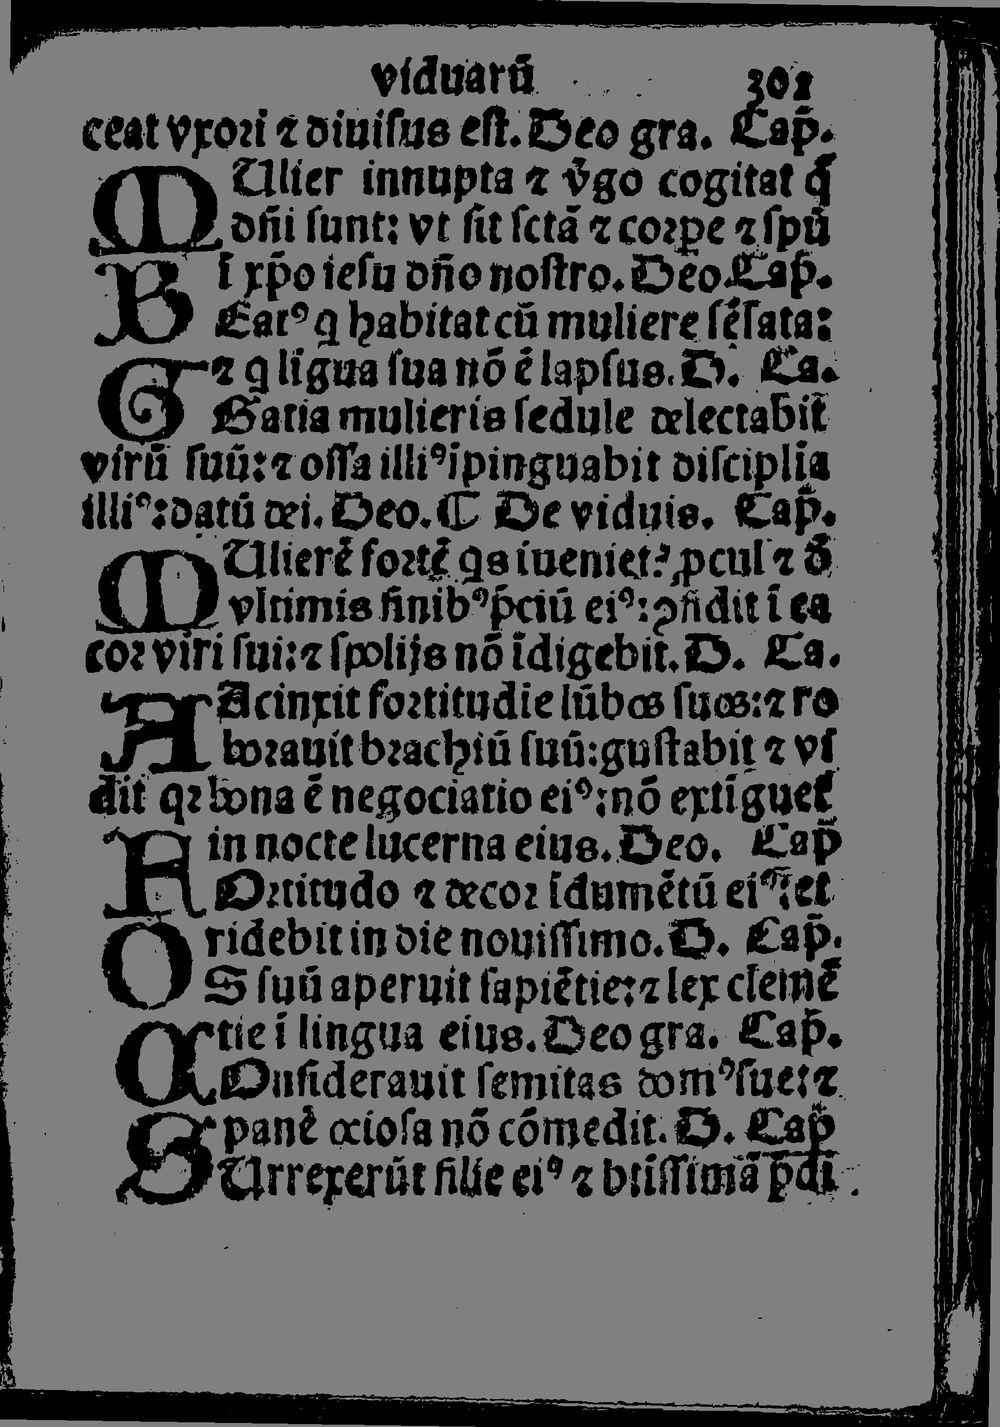 viduarū 301
ceat vxori ⁊ diuisus est. Deo gra. Cap̄.
MUlier innupta ⁊ v̄go cogitat q̄
dn̄i sunt: vt sit sctā ⁊ corpe ⁊ spū
ī xp̄o iesu dn̄o nostro. Deo. Cap̄.
BEatꝰ q habitat cū muliere sēsata:
⁊ q līgua sua nō ē lapsus. D. Ca.
GRatia mulieris sedule delectabit
virū suū: ⁊ ossa illiꝰ īpinguabit disciplīa
illiꝰ: datū dei. Deo. ¶ De viduis. Cap̄.
MUlierē fortē qs īueniet? ꝓcul ⁊ d̄
vltimis finibꝰ p̄ciū eiꝰ: ꝯfidit ī ea
cor viri sui: ⁊ spolijs nō īdigebit. D. Ca.
AAcinxit fortitudīe lūbos suos: ⁊ ro
borauit brachiū suū: gustabit ⁊ vi
dit qꝛ bona ē negociatio eiꝰ: nō extīguet̄
in nocte lucerna eius. Deo. Cap̄
FOrtitudo ⁊ decor īdumētū eiꝰ: et
ridebit in die nouissimo. D. Cap̄.
OS suū aperuit sapiētie: ⁊ lex clemē
tie ī lingua eius. Deo gra. Cap̄.
COnsiderauit semitas domꝰ sue: ⁊
panē ociosa nō cōmedit. D. Cap̄
SUrrexerūt filie eiꝰ ⁊ btīssimā p̄di